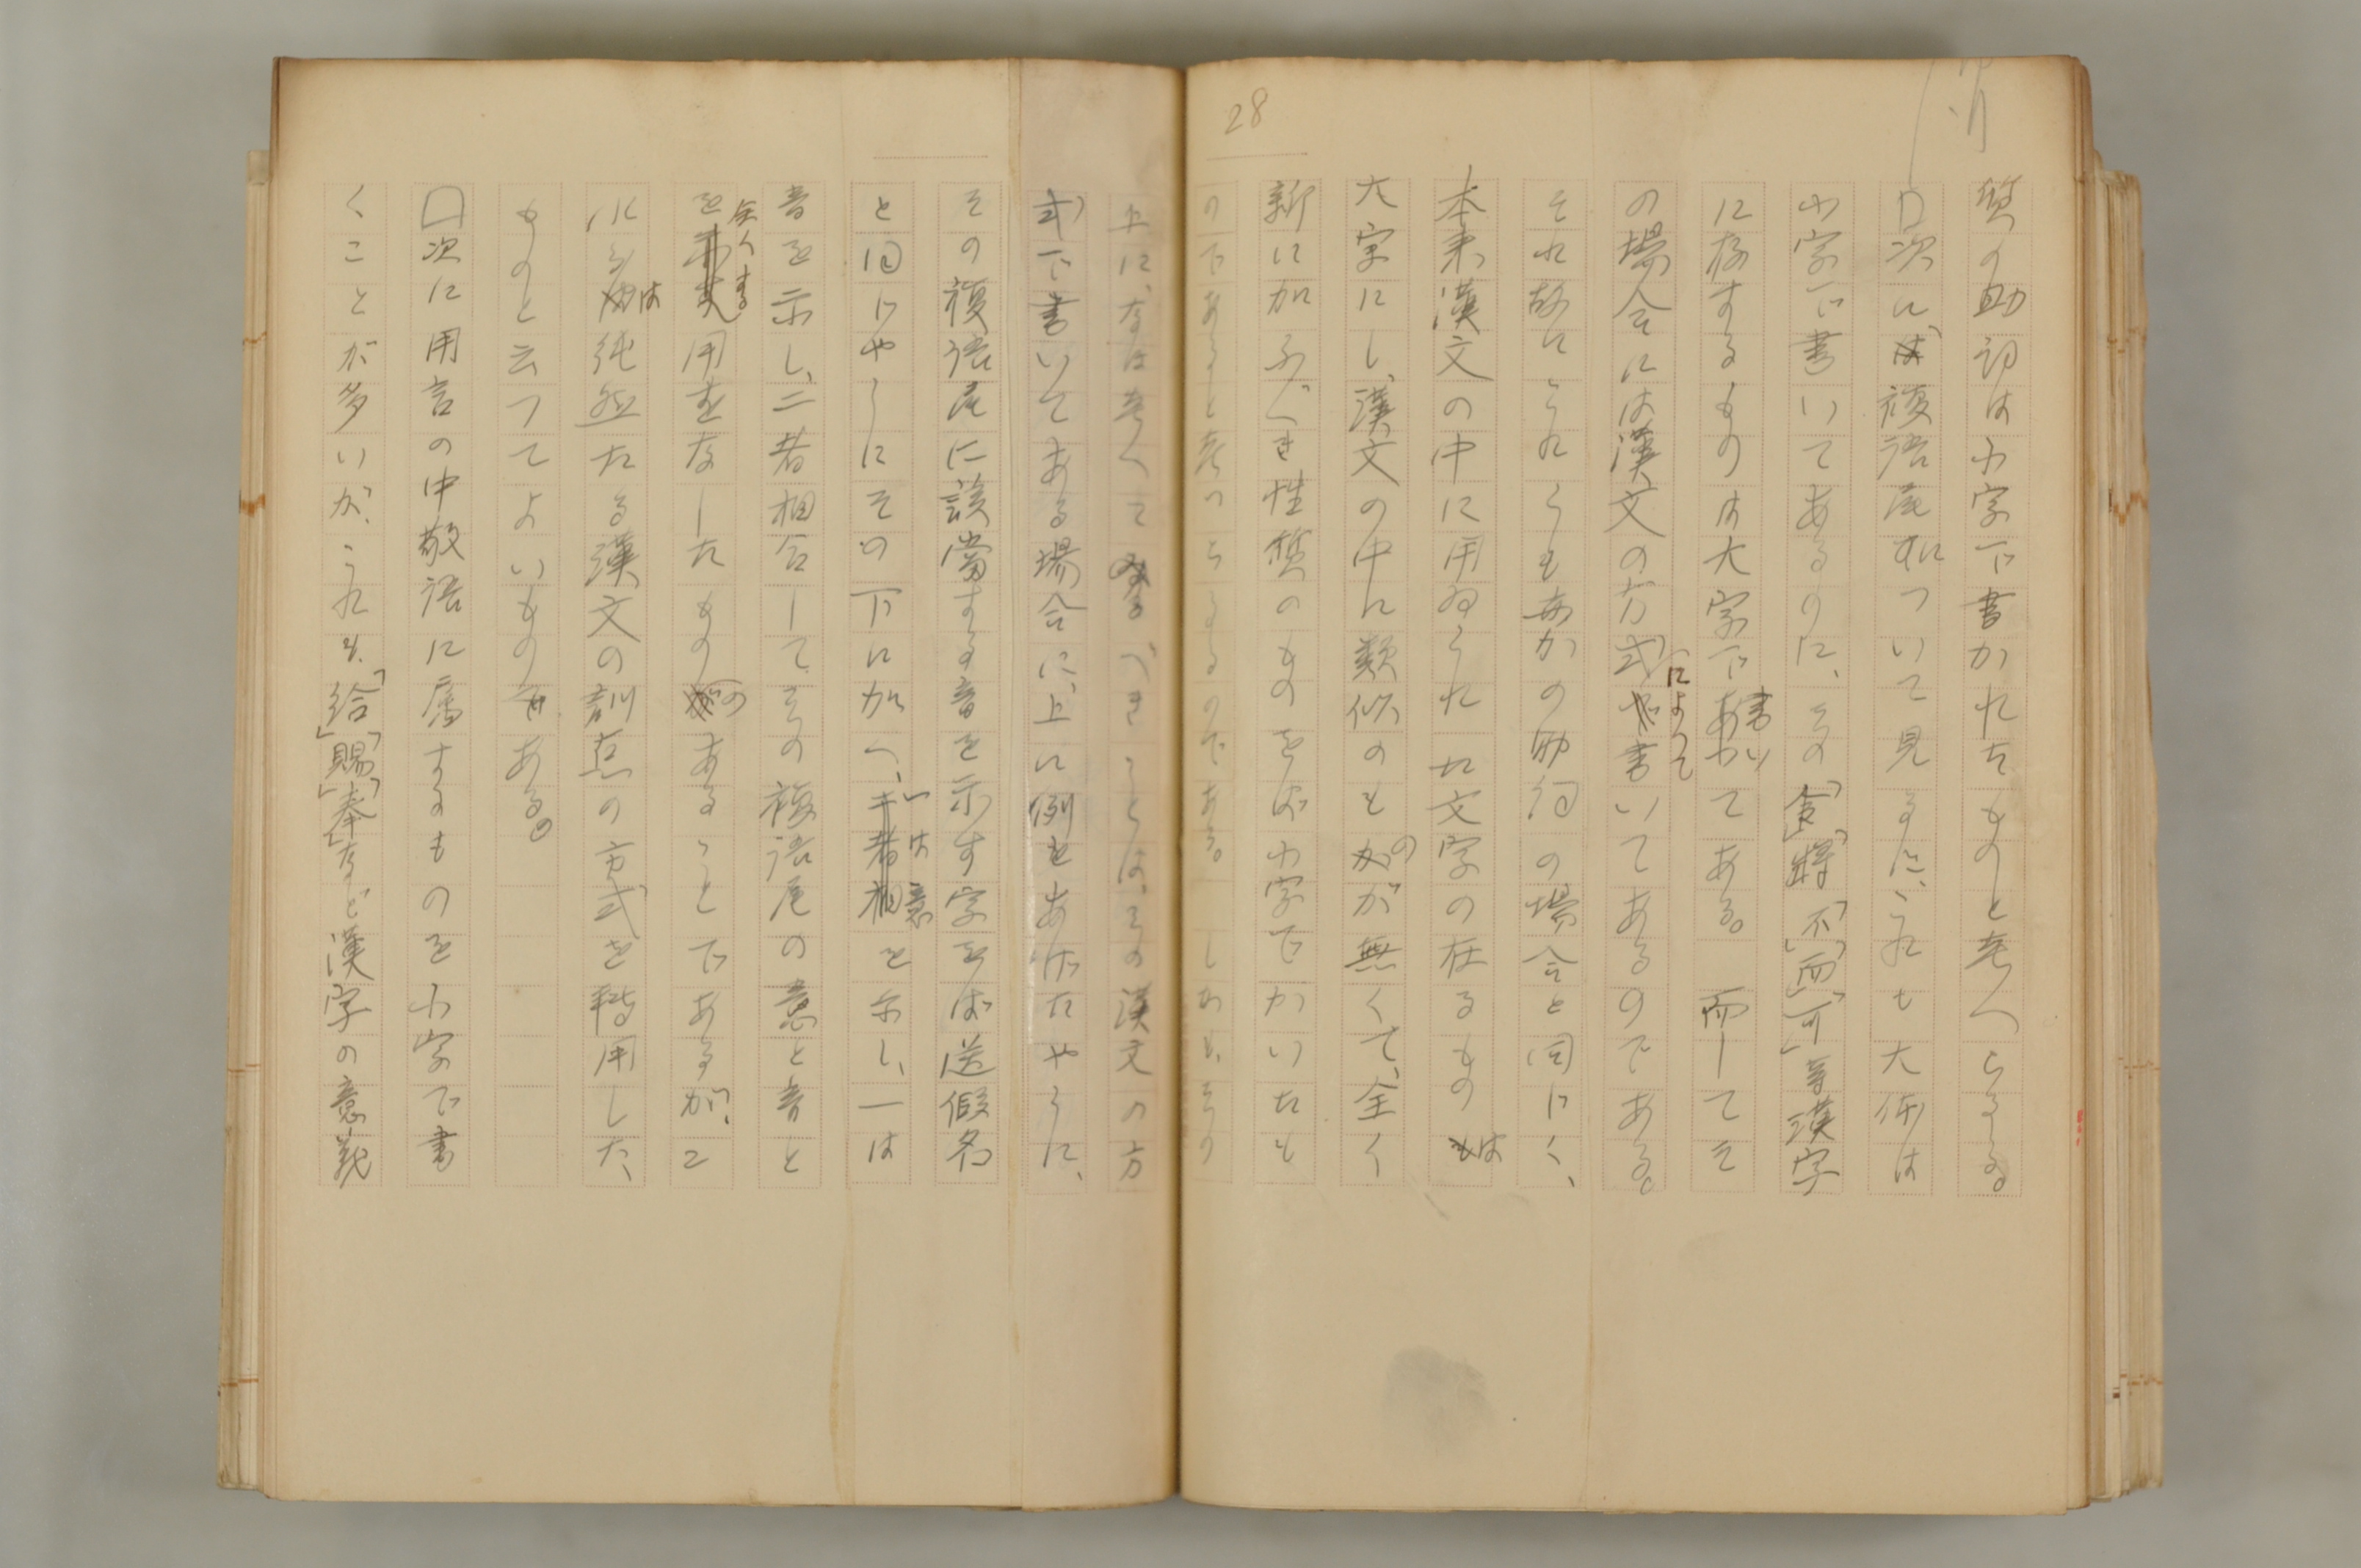 質の助詞は小字で書かれたものと考へらるる。
次に複語尾について見るに、これも大体は
小字で書いてあるのに、その「令」「將」「不」「而」「可」等漢字
に存するものは大字で書いてある。而してそ
の場合には漢文の方式によつて書いてあるのである。
それ故にこれらも亦かの助詞の場合と同じく、
本来漢文の中に用ゐられた文字の在るものは
大字にし、漢文の中に類似のものが無くて、全く
新に加ふべき性質のものをば小字でかいたも
のであると考へらるるのである。しかも、その
上に、なほ考へてみるべきことは、その漢文の方
式で書いてある場合に、上に例をあげたやうに、
その複語尾に該當する音を示す字をば送假名
と同じやうにその下に加へ、一は意を示し、一は
音を示し、二者相合して、その複語尾の意と音と
を全くする用をなしたものあることであるが、こ
れらは純然たる漢文の訓点の方式を轉用した、
ものと云つてよいものである。
次に用言の中敬語に属するものを小字で書
くことが多いが、これも、「給」「賜」「奉」など漢字の意義
28